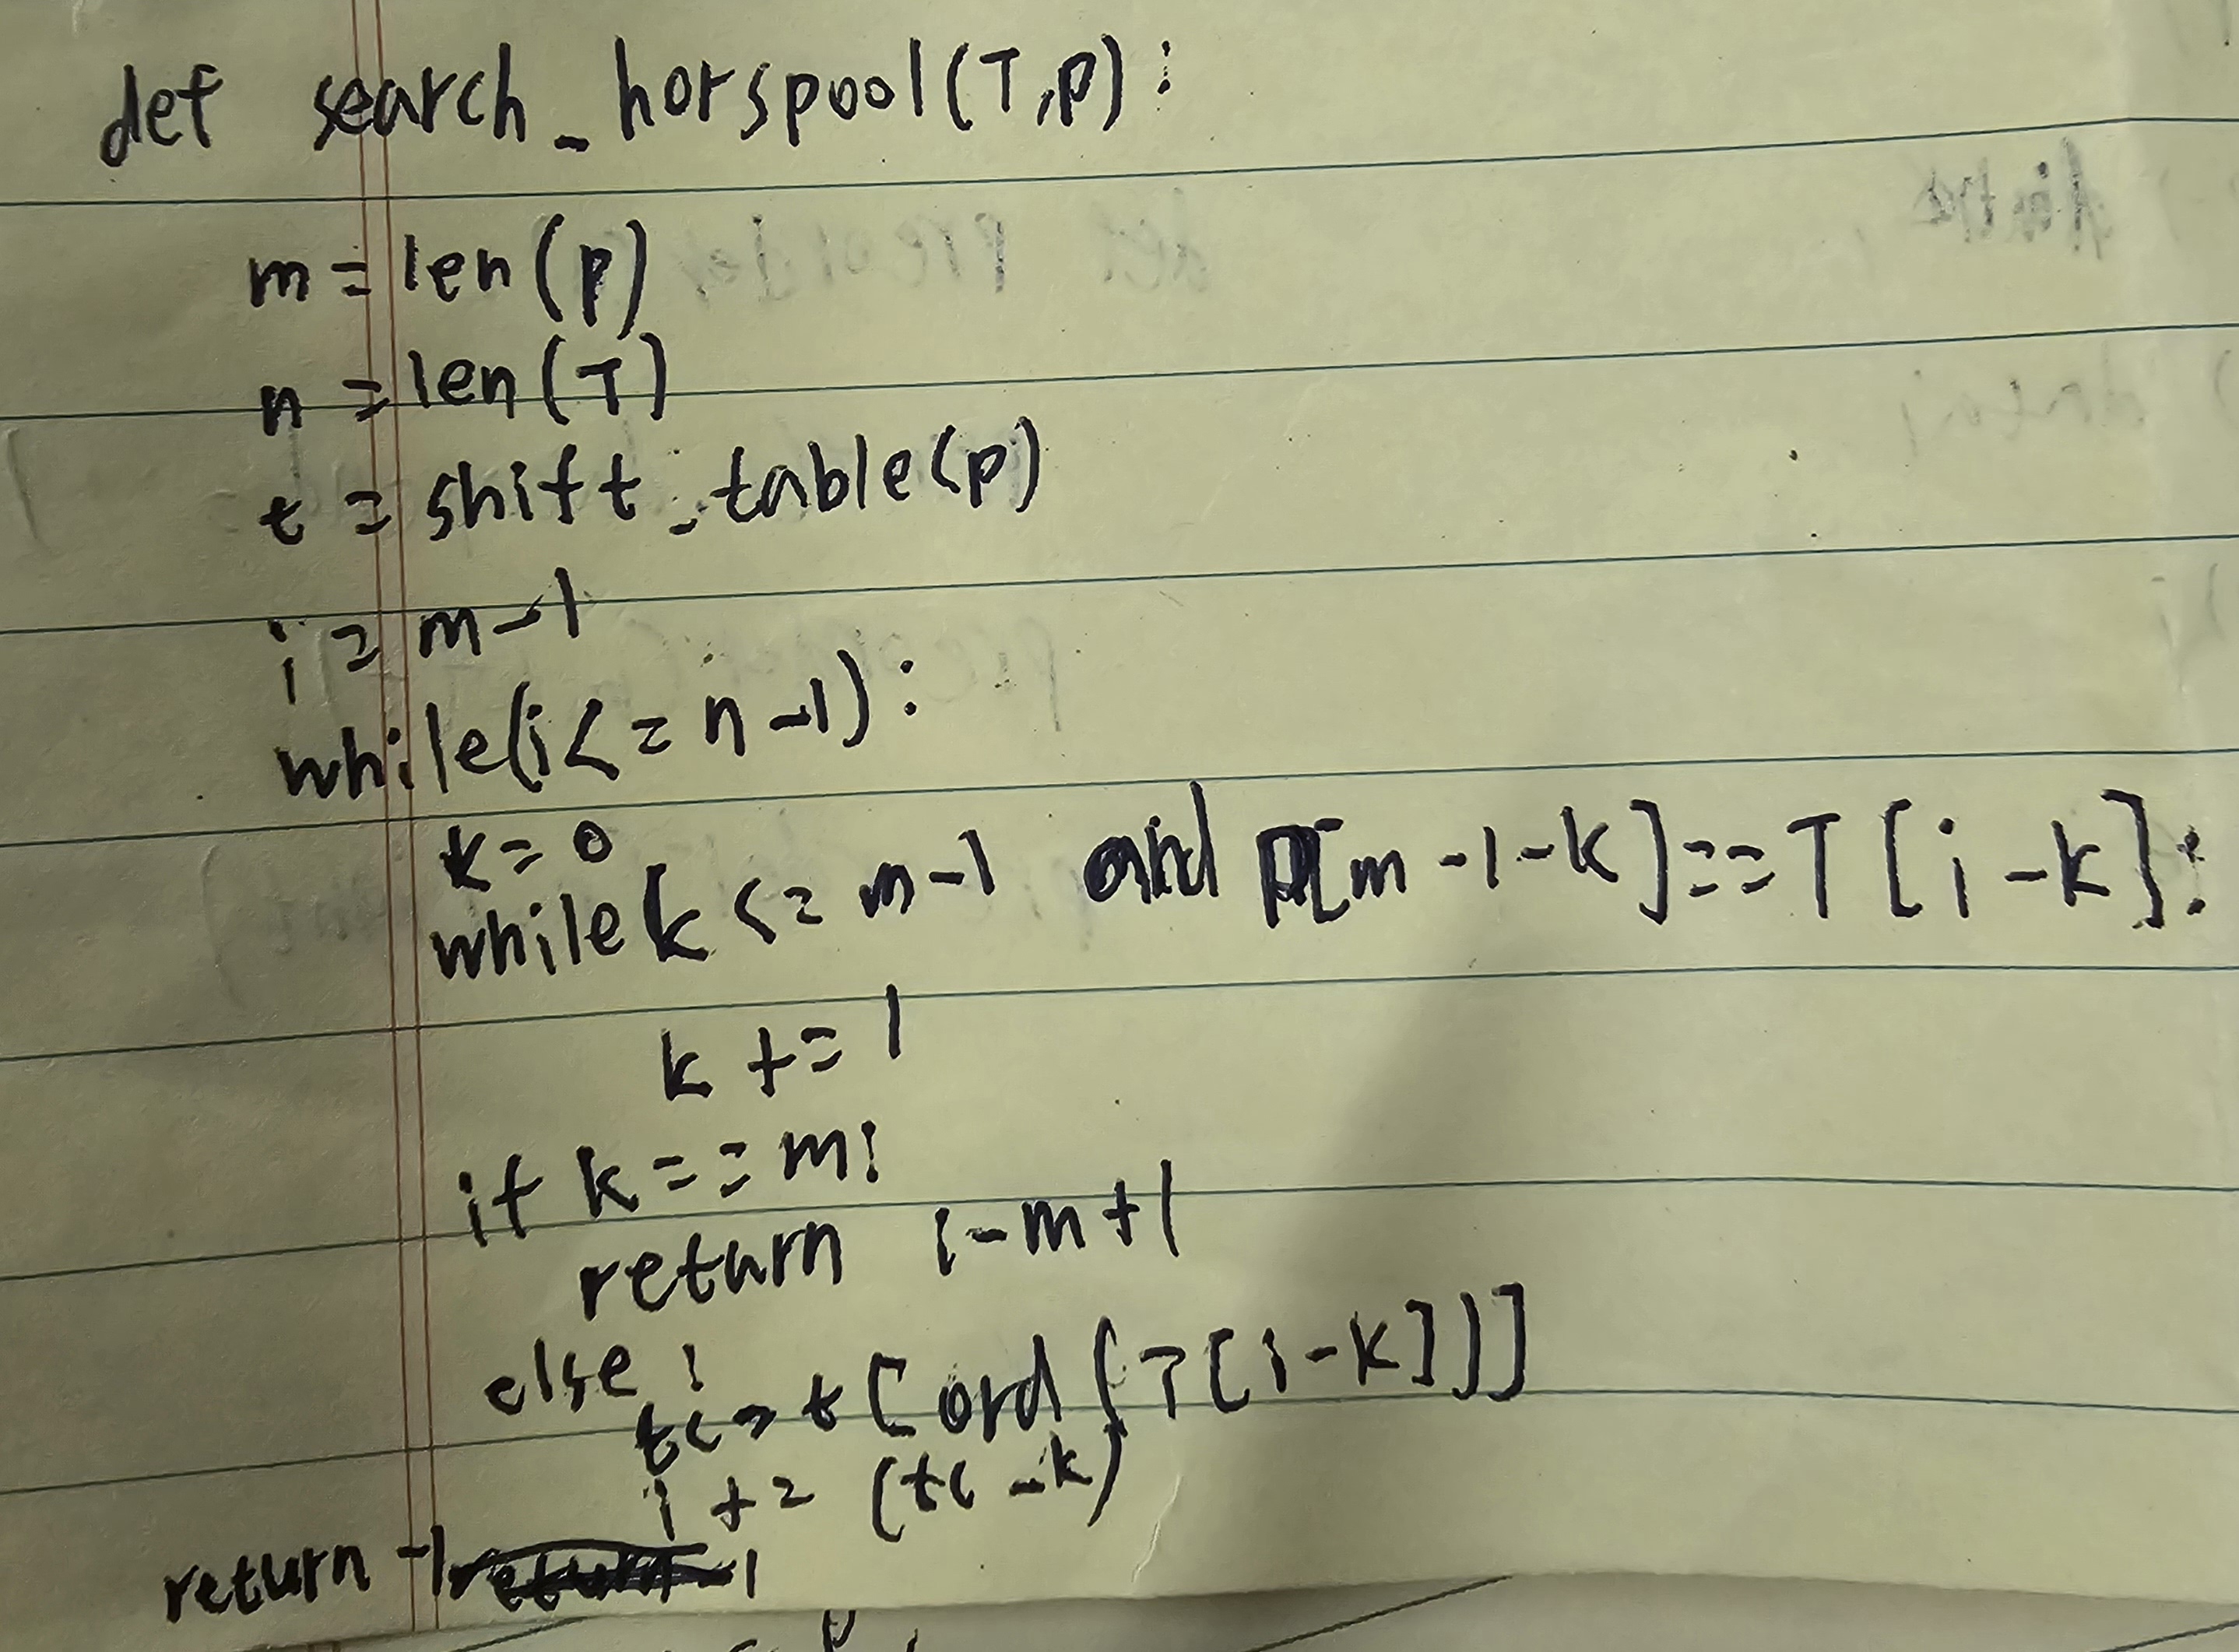 def search_horspool(T,p):
m = len(p)
n = len(T)
t = shift_table(p)
i = m-1
while(i<=n-1):
k=0
while(k <= m-1 and p[m-1-k]==T[i-k]:
k += 1
if k == m:
return i-m+1
else:
tc = t[ord(T[i-k])]
i += (tc-k)
return -1